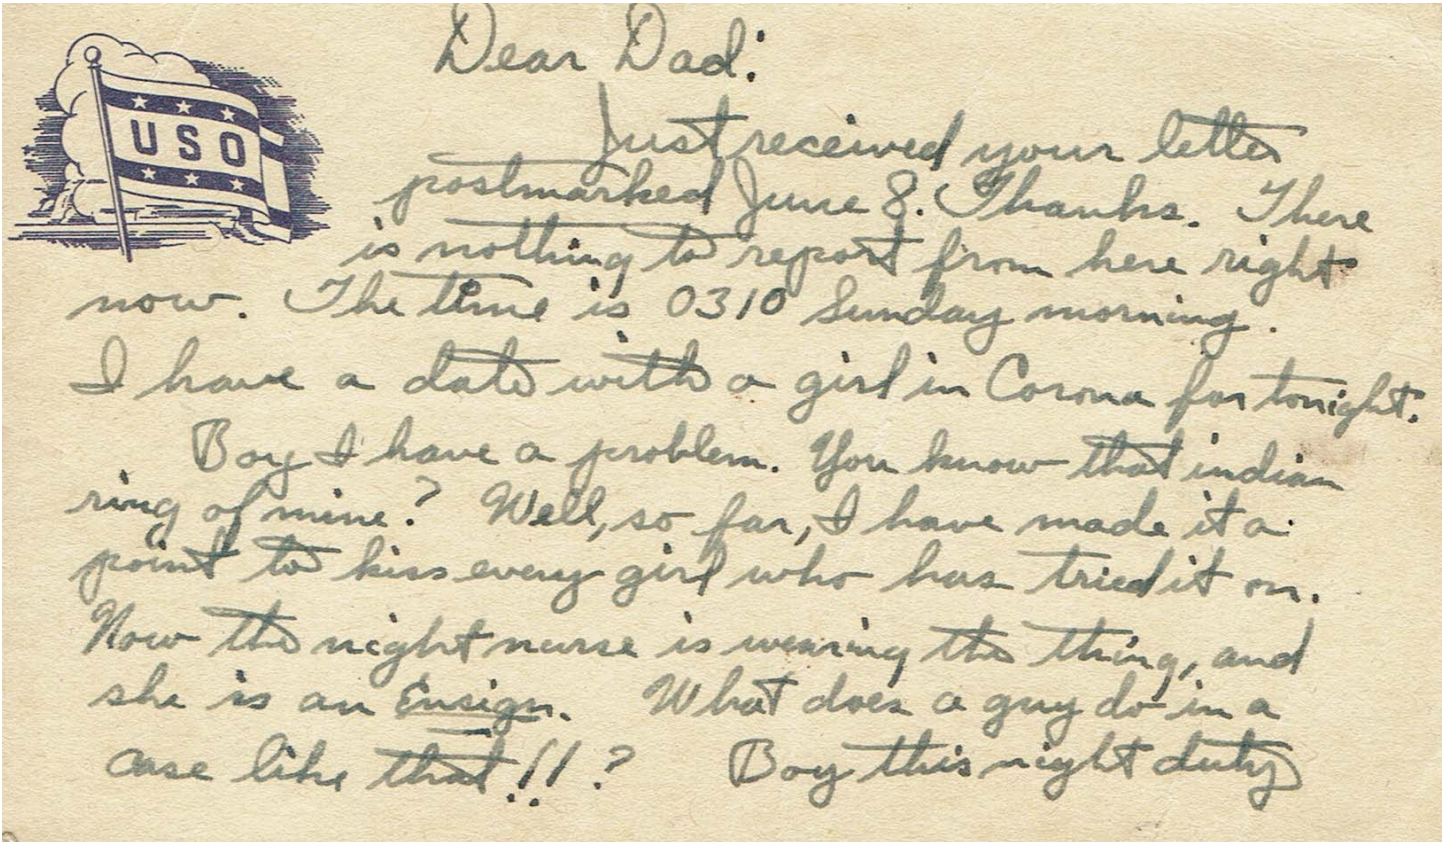 USO
Dear Dad:
Just received your letter
postmarked June 8. Thanks. There
is nothing to report from here right
now. The time is 0310 Sunday morning.
I have a date with a girl in Corona for tonight.
Boy I have a problem. You know that indian
ring of mine? Well, so far, I have made it a
point to kiss every girl who has tried it on.
Now the night nurse is wearing the thing, and
she is an Ensign. What does a guy do in a
case like that!!? Boy this night duty